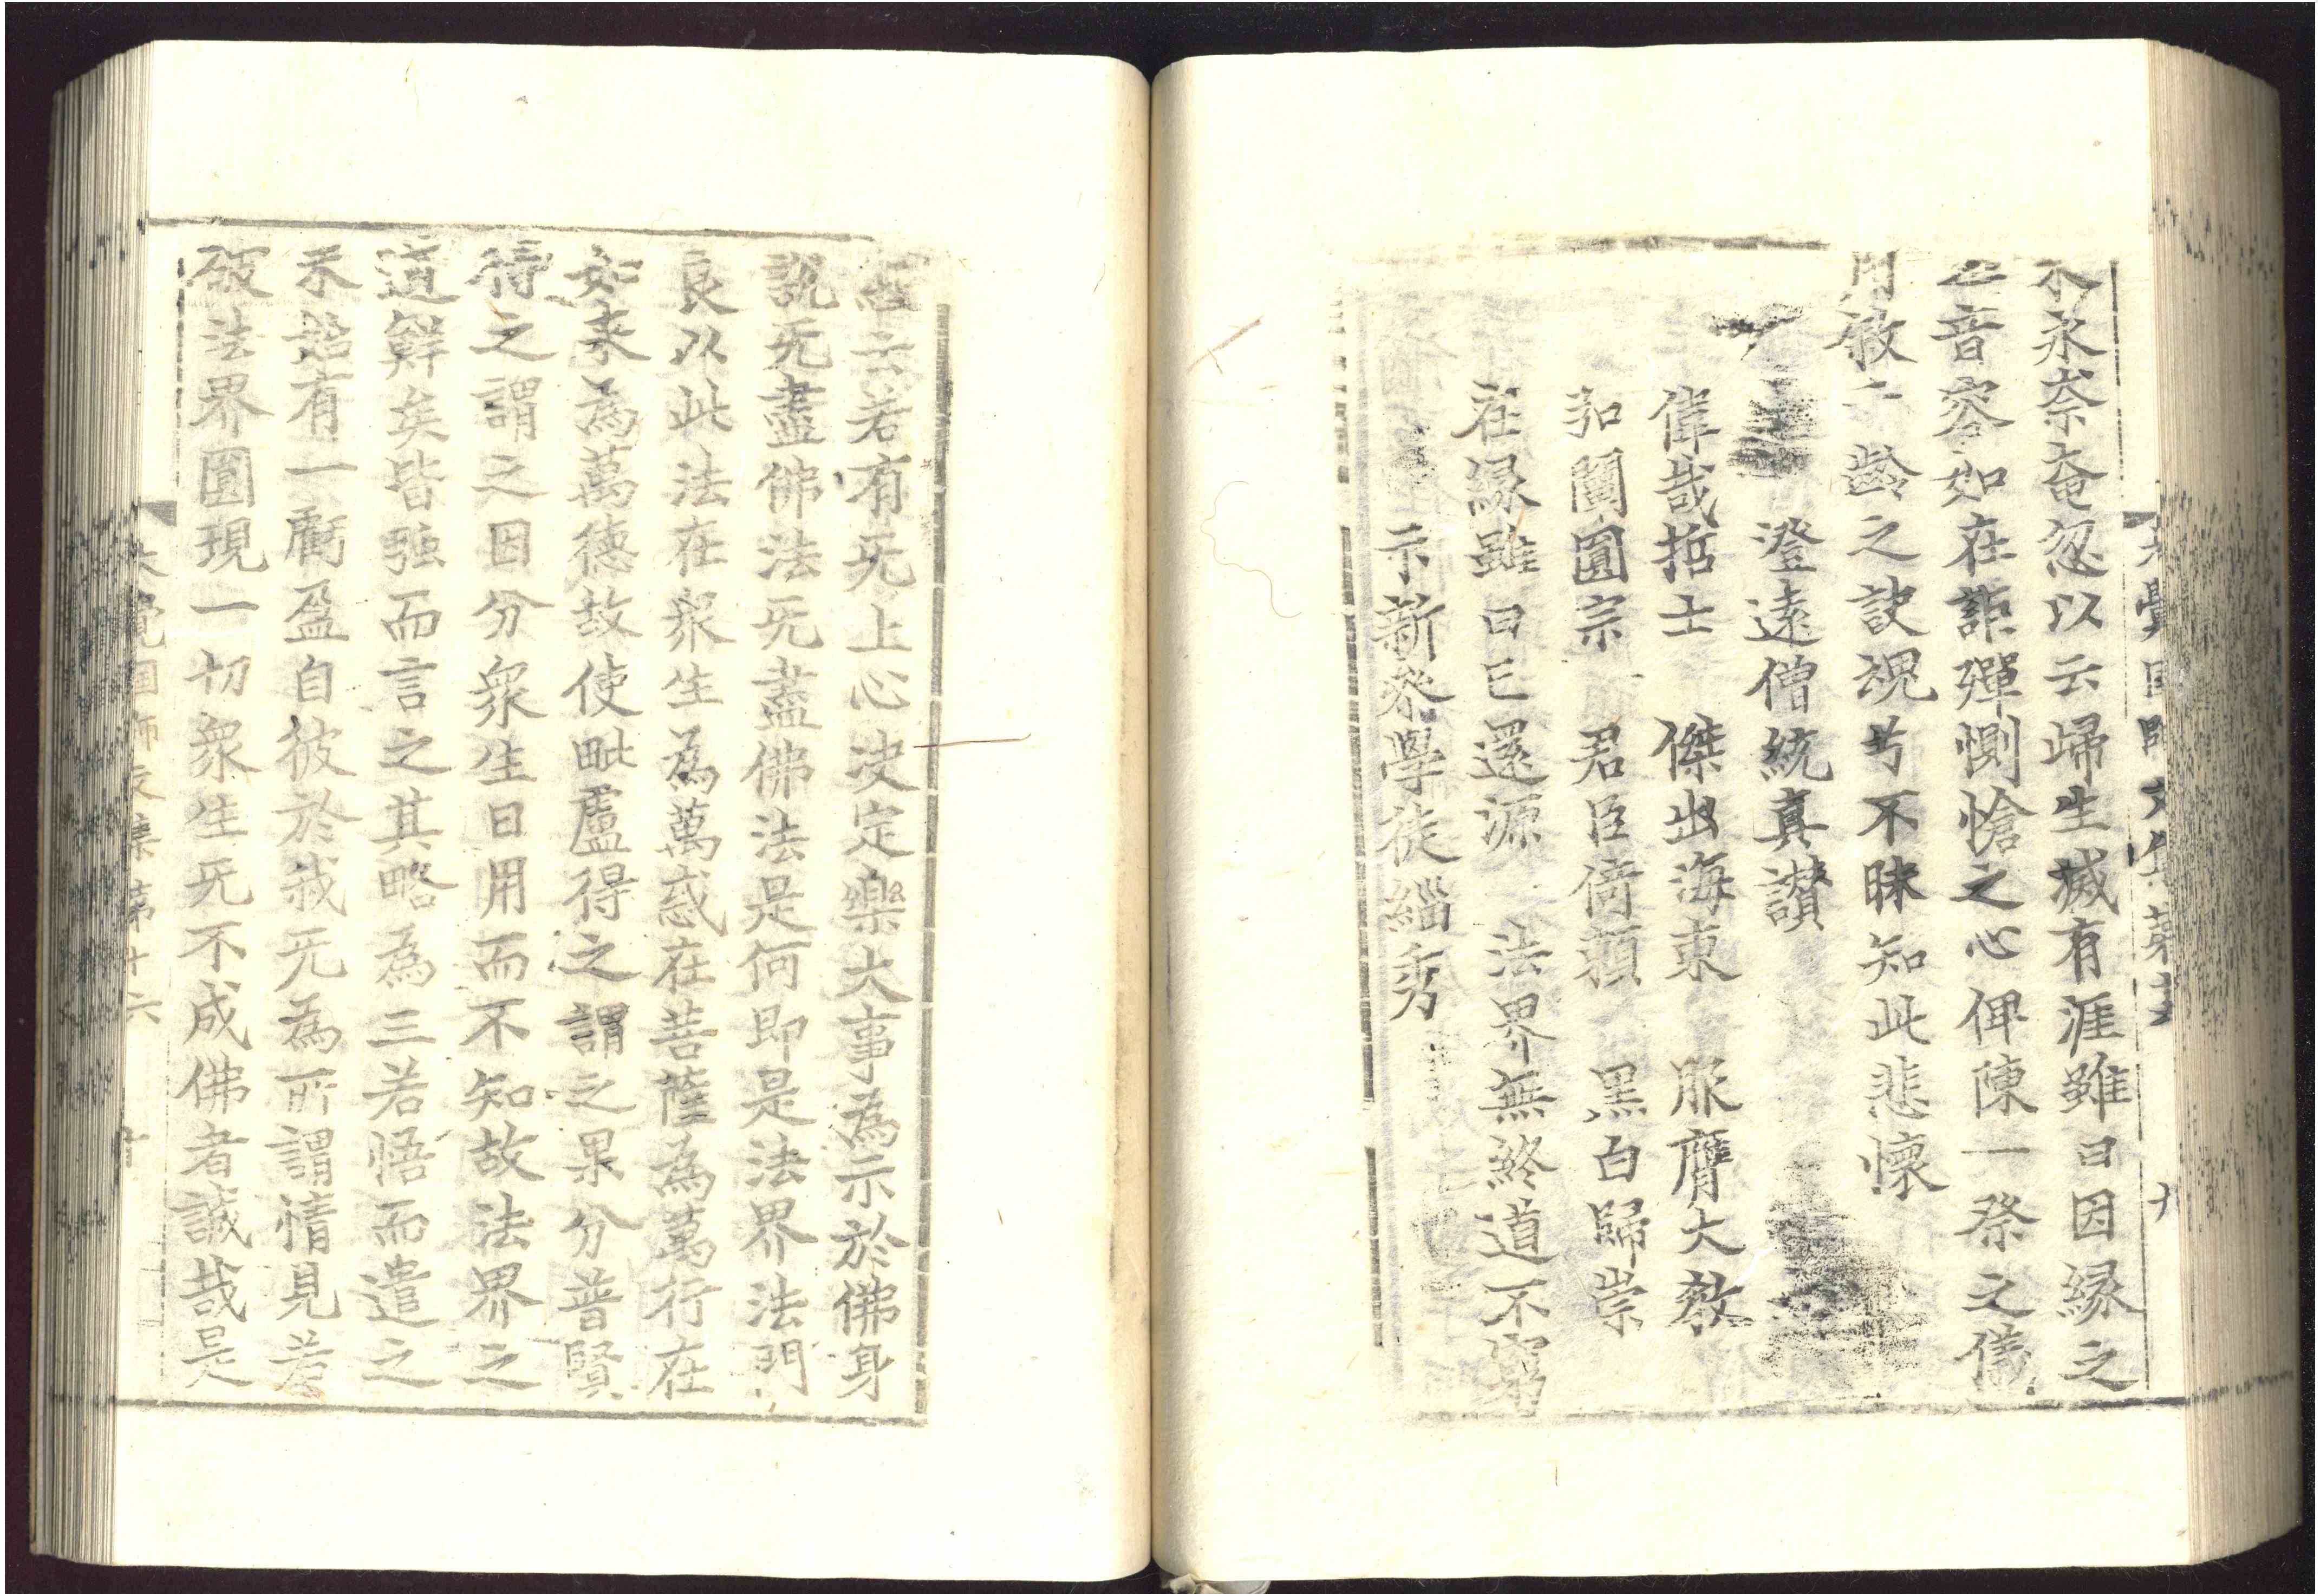 大覺國師文集第十 十
不永奈奄忽以云歸生滅有涯雖曰因緣之
音容如在詎殫惻愴之心俾陳一祭之儀
用敘二齡之訣魂兮不昧知此悲懷
澄遠僧統真讃
偉哉哲士 傑出海東 服膺大教
弘闡圓宗 君臣倚賴 黑白歸崇
在緣雖曰已還源 法界無終道不窮
示新參學徒緇秀
經云若有无上心決定樂大事為示於佛身
說无盡佛法无盡佛法是何即是法界法門
良以此法在眾生為萬惑在菩薩為萬行在
如來為萬德故使毗盧得之謂之果分普賢
得之謂之因分衆生日用而不知故法界之
道鮮矣皆强而言之其略為三若悟而遣之
示始有一虧盈自彼於我无為所謂情見若
破法界圓現一切衆生无不成佛者誠哉是
大覺國師文集第十六